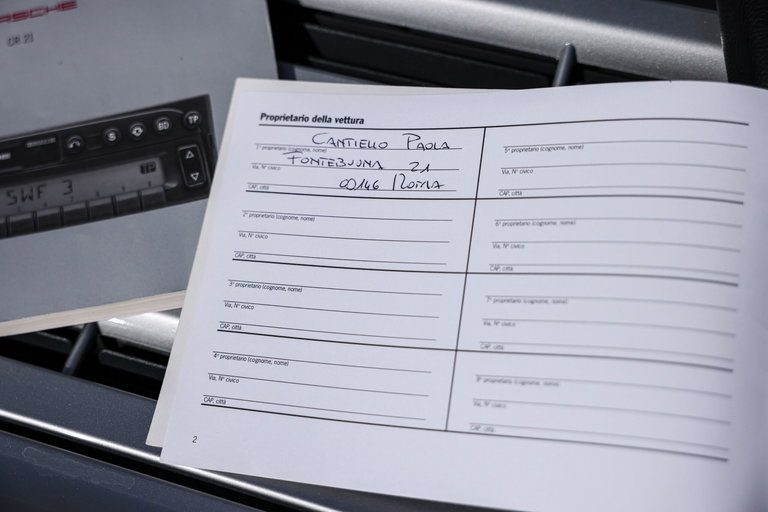 PORSCHE
CR 21
S
BD
TP
TP
SWF 3
Proprietario della vettura
CANTIELLO PAOLA
1° proprietario (cognome, nome)
FONTEBUONA 21
Via, N° civico
00146 ROMA
CAP, città
2° proprietario (cognome, nome)
Via, N° civico
CAP, città
3° proprietario (cognome, nome)
Via, N° civico
CAP, città
4° proprietario (cognome, nome)
Via, N° civico
CAP, città
2
5° proprietario (cognome, nome)
Via, N° civico
CAP, città
6° proprietario (cognome, nome)
Via, N° civico
CAP, città
7° proprietario (cognome, nome)
Via, N° civico
CAP, città
8° proprietario (cognome, nome)
Via, N° civico
CAP, città